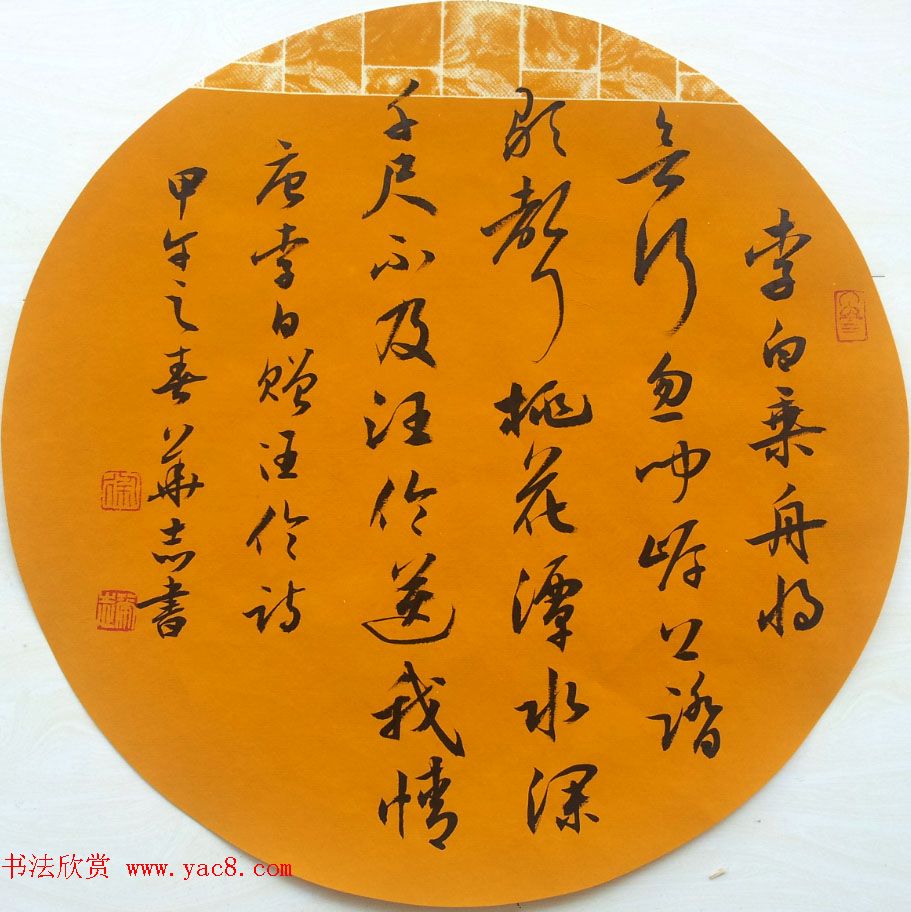 李白乘舟将
欲行忽闻岸上踏
歌聲桃花潭水深
千尺不及汪伦送我情
唐李白赠汪伦诗
甲午之春華志書
书法欣赏 www.yac8.com